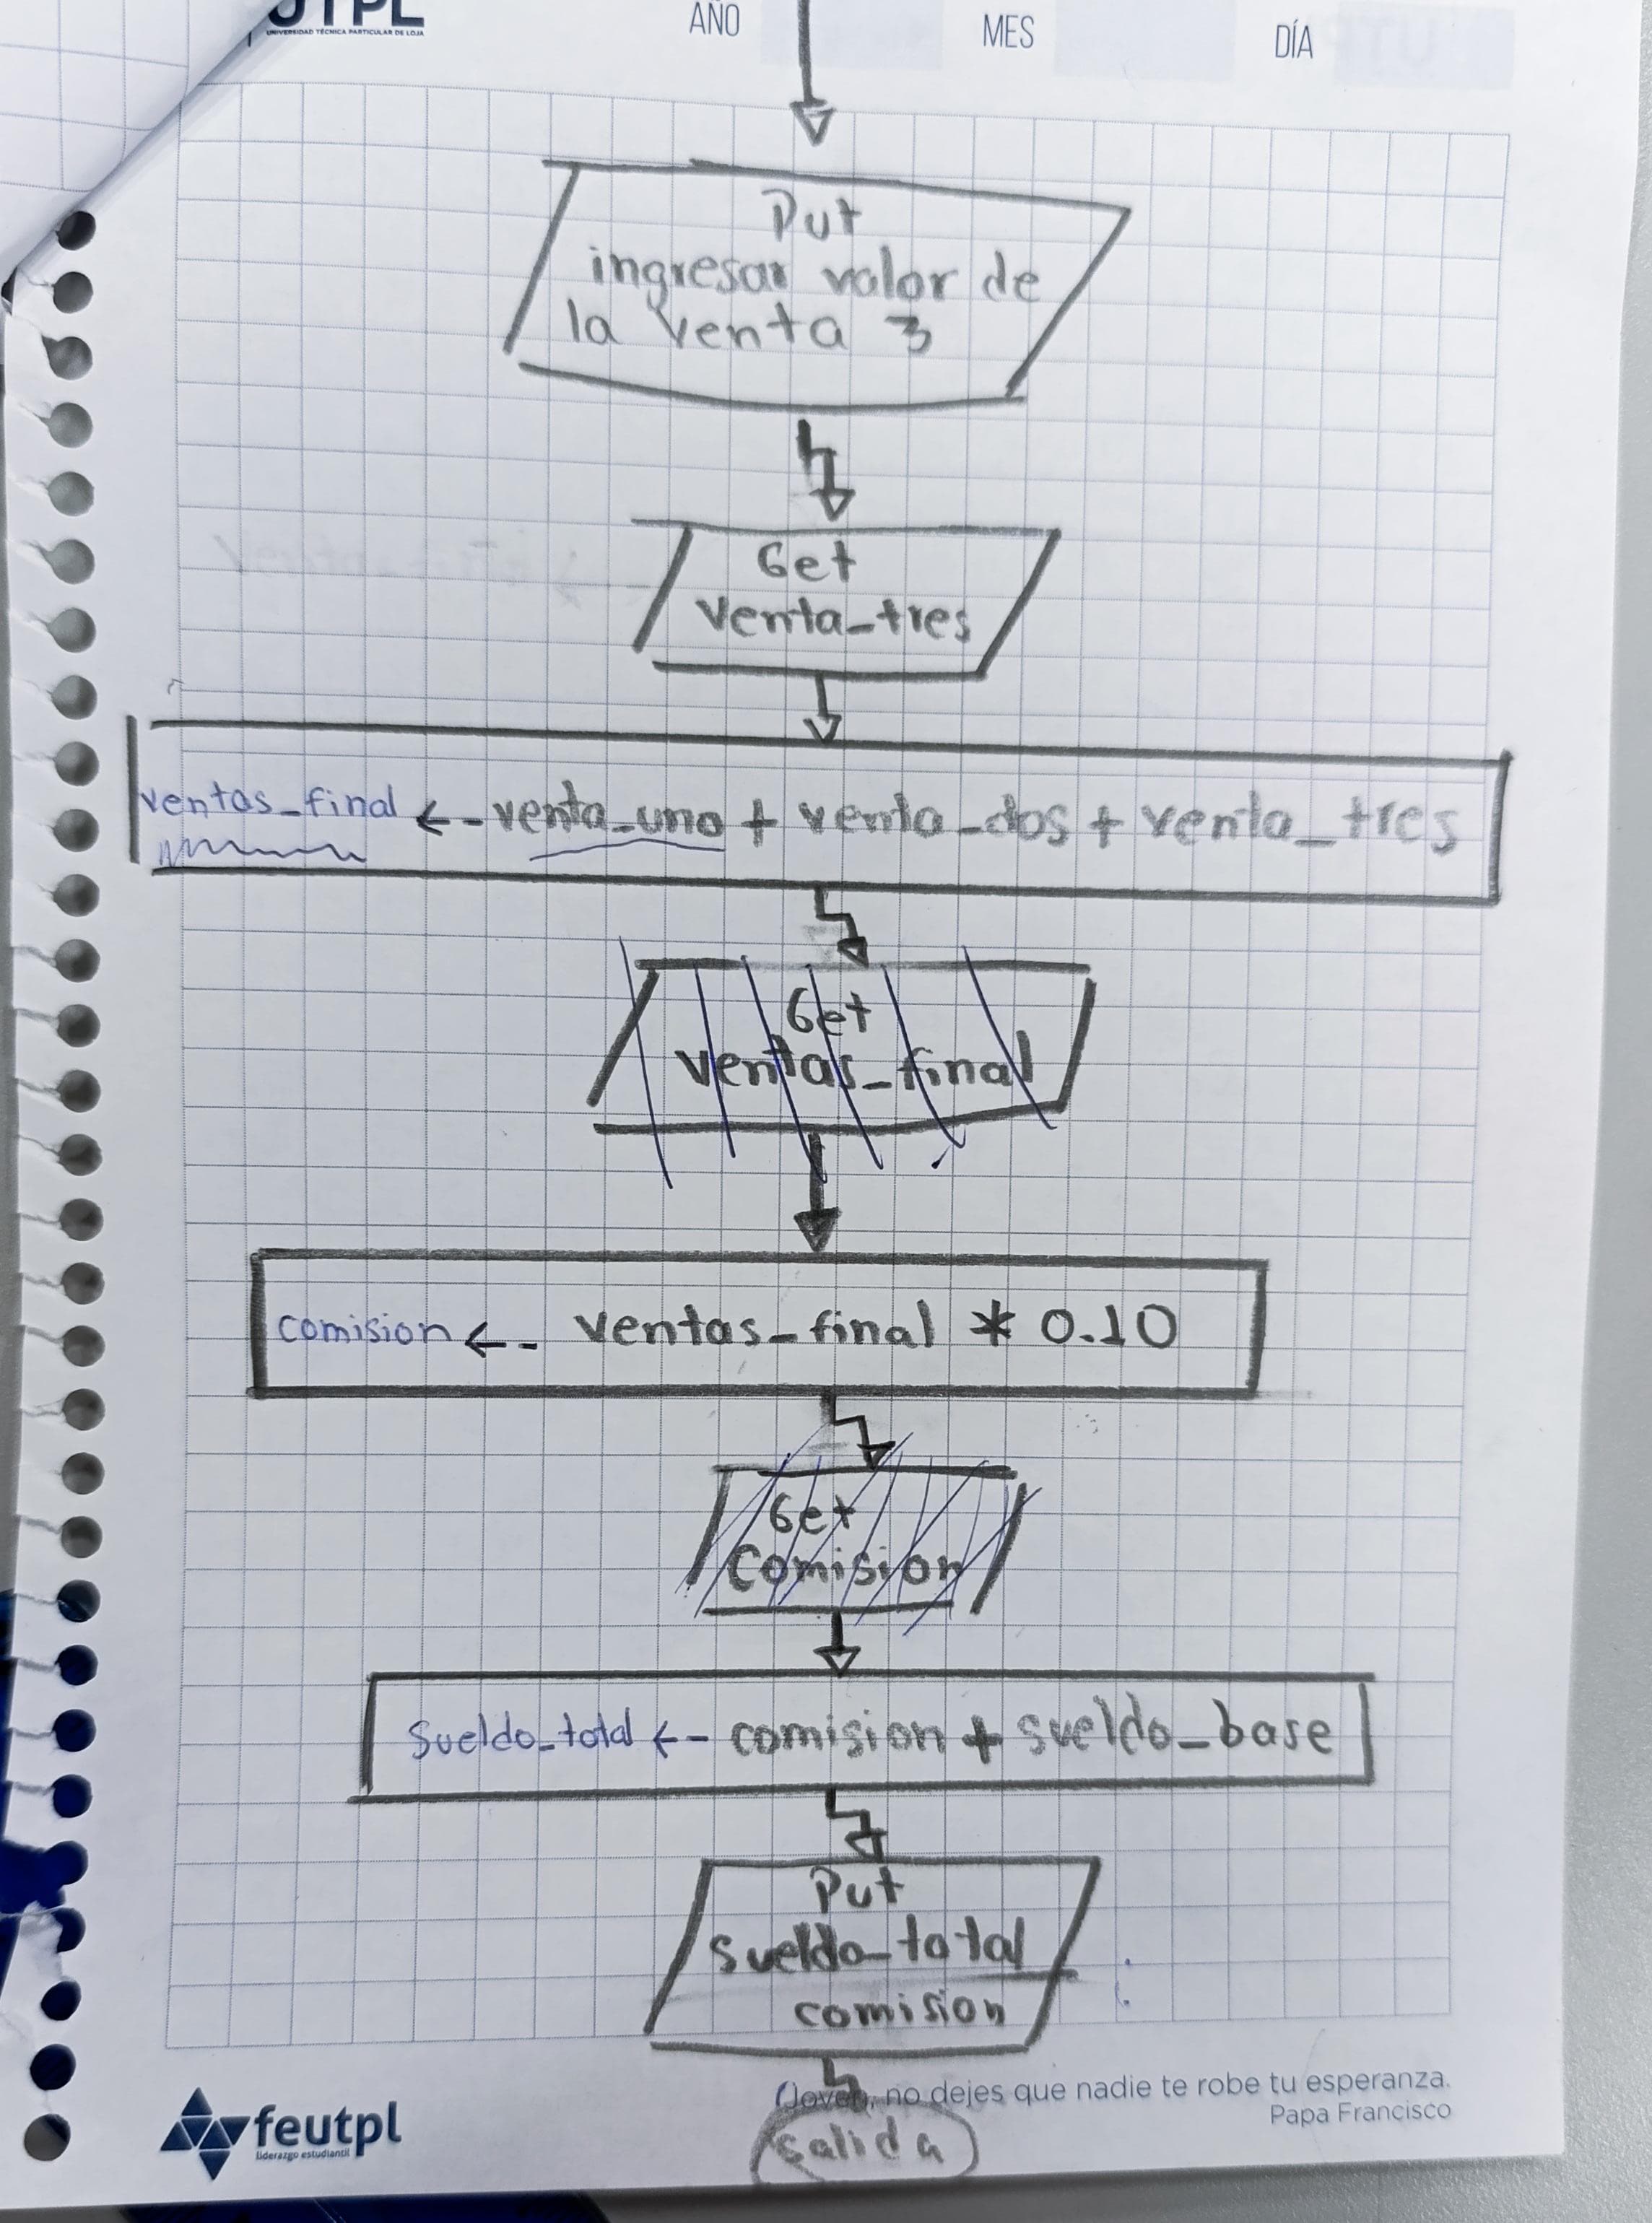 UTPL
UNIVERSIDAD TÉCNICA PARTICULAR DE LOJA
AÑO MES DÍA
Put
ingresar valor de
la venta 3
Get
venta_tres
ventas_final ← venta_uno + venta_dos + venta_tres
Get
ventas_final
comision ← ventas_final * 0.10
Get
Comision
Sueldo_total ← comision + sueldo_base
Put
sueldo_total
comision
¡Joven, no dejes que nadie te robe tu esperanza.
Papa Francisco
feutpl
liderazgo estudiantil
salida